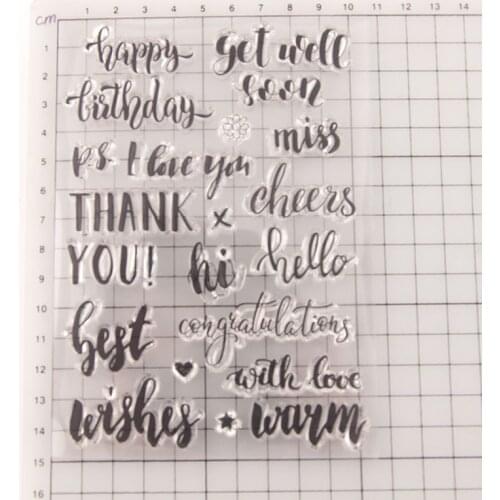 cm 1 2 3 4 5 6 7 8 9 10 11 12 13 14
1 happy get well
2 birthday soon
3
4 miss
5 p.s. I love you
6 cheers
7 THANK x
8 YOU! hi hello
9
10
11 best congratulations
12
13 with love
14 wishes warm
15
16